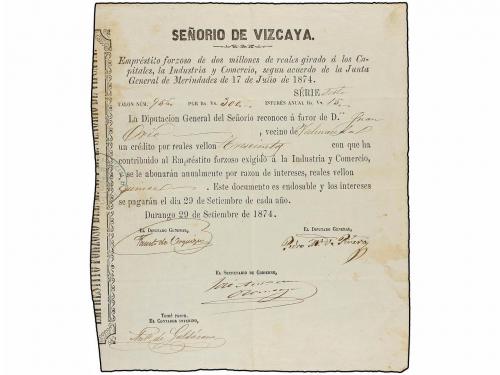 SEÑORIO DE VIZCAYA.
Empréstito forzoso de dos millones de reales girado á los Ca-
pitales, la Industria y Comercio, segun acuerdo de la Junta
General de Merindades de 17 de Julio de 1874.
SÉRIE
TALON NÚM. POR RS. VN. 300 INTERÉS ANUAL RS. VN. 15
La Diputacion General del Señorio reconoce á favor de D. Juan
vecino de Valmaseda
un crédito por reales vellon Trescientos con que ha
contribuido al Empréstito forzoso exigido á la Industria y Comercio,
se le abonarán anualmente por razon de intereses, reales vellon
quince. Este documento es endosable y los intereses
se pagarán el dia 29 de Setiembre de cada año.
Durango 29 de Setiembre de 1874.
EL DIPUTADO GENERAL, EL DIPUTADO GENERAL,
Fausto de Urquizu Pedro
EL SECRETARIO DE GOBIERNO,
TOMÉ RAZON.
EL CONTADOR INTERINO,
de Galdácano
EMPRESTITO FORZOSO DEL SEÑORIO DE VIZCAYA.